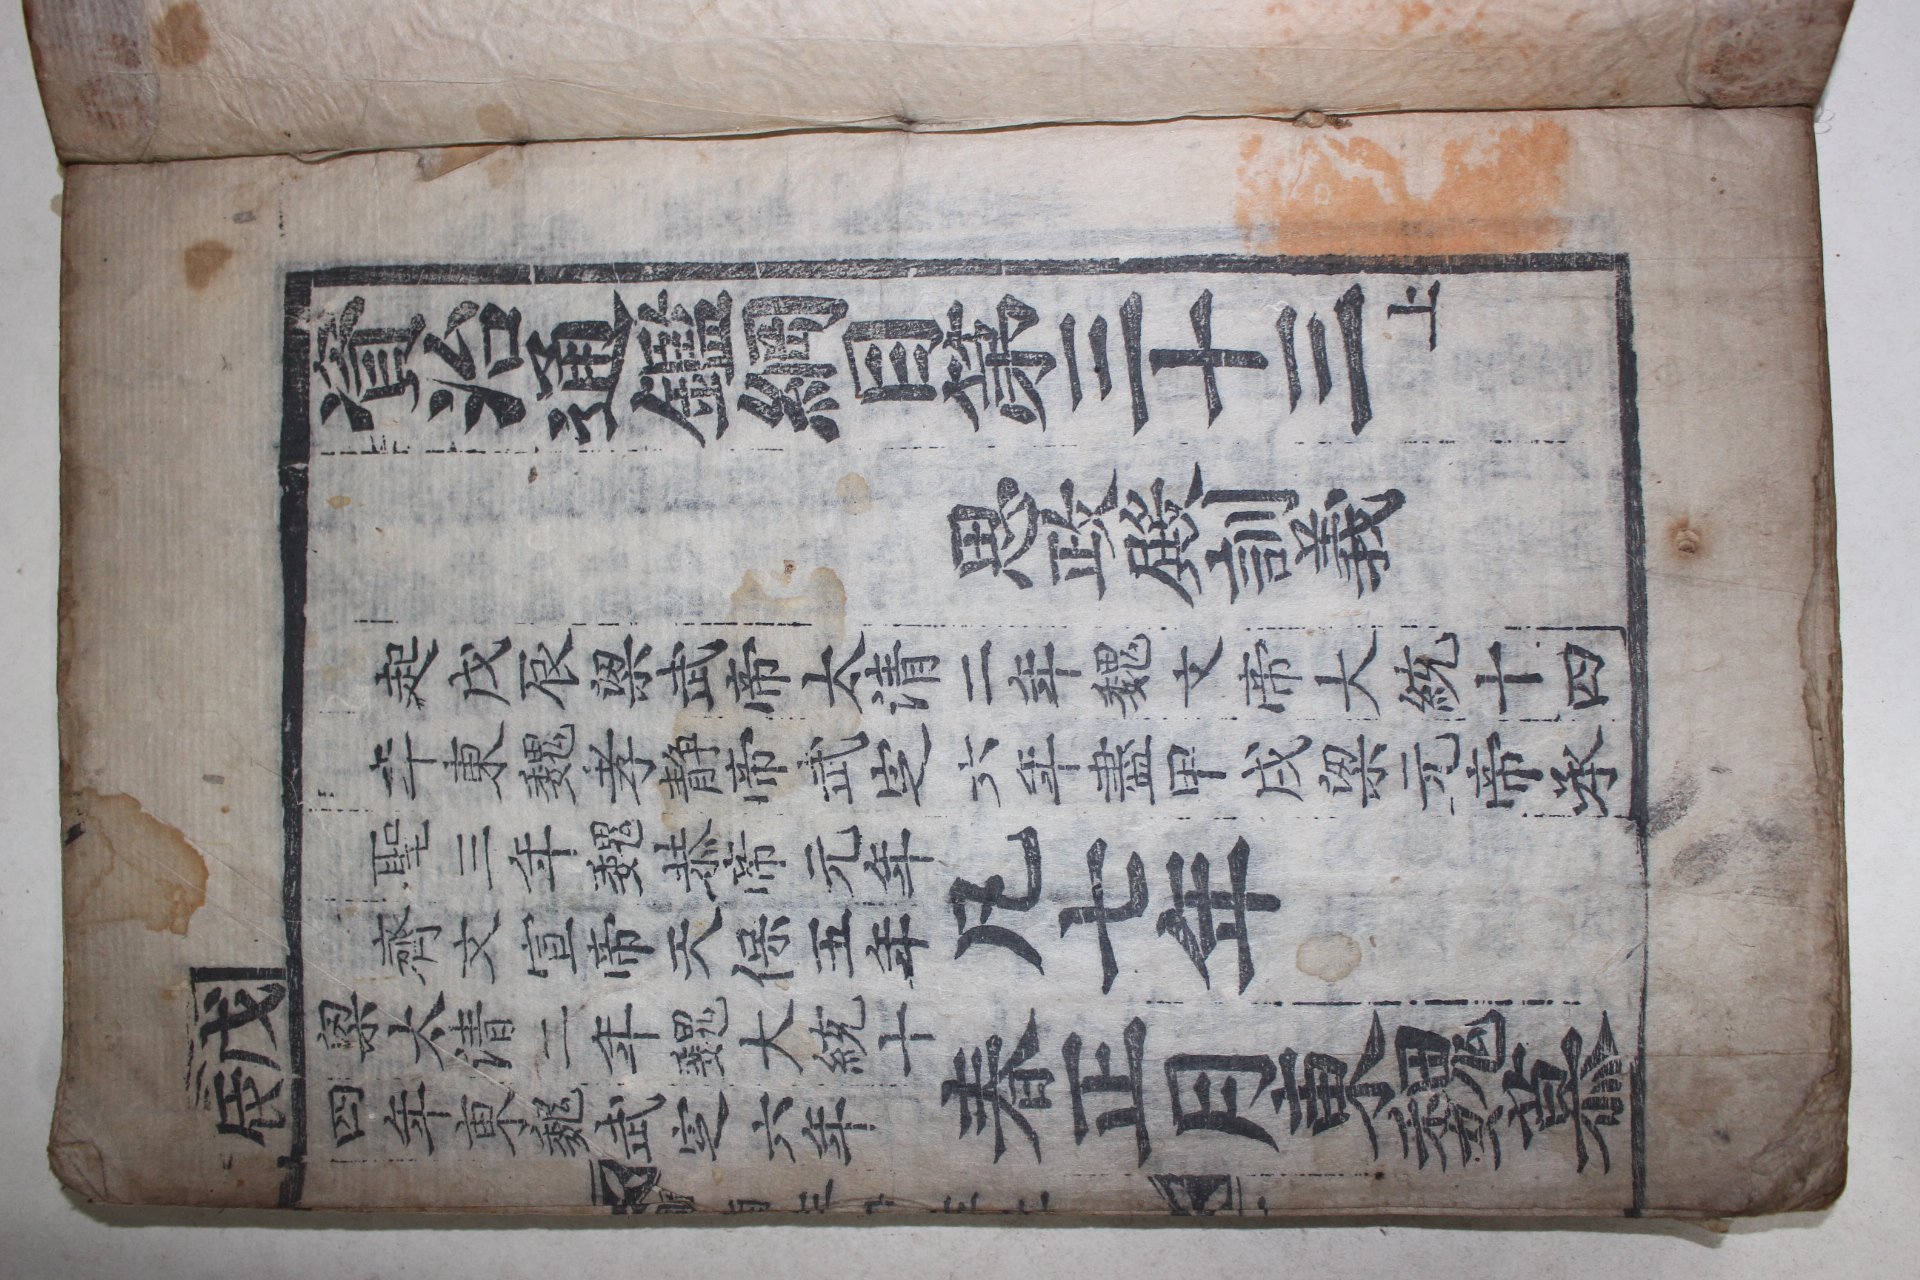 資治通鑑綱目第三十三上
思政殿訓義
起戊辰梁武帝太淸二年魏文帝大統十四
年東魏孝靜帝武定六年盡甲戌梁元帝承
聖三年魏恭帝元年
齊文宣帝天保五年
凡七年
戊辰
梁太淸二年魏大統十
四年東魏武定六年
春正月東魏慕